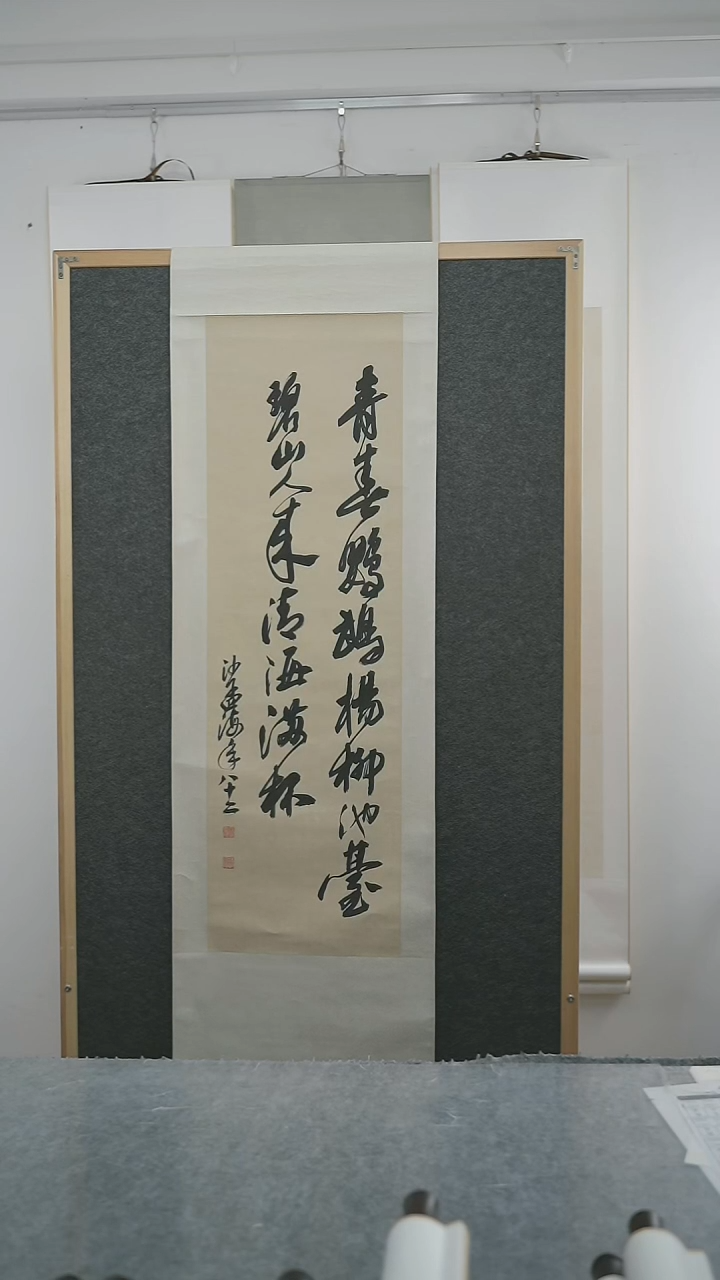 青春鸚鵡楊柳池臺
碧山人來清酒滿杯
沙孟海年八十二